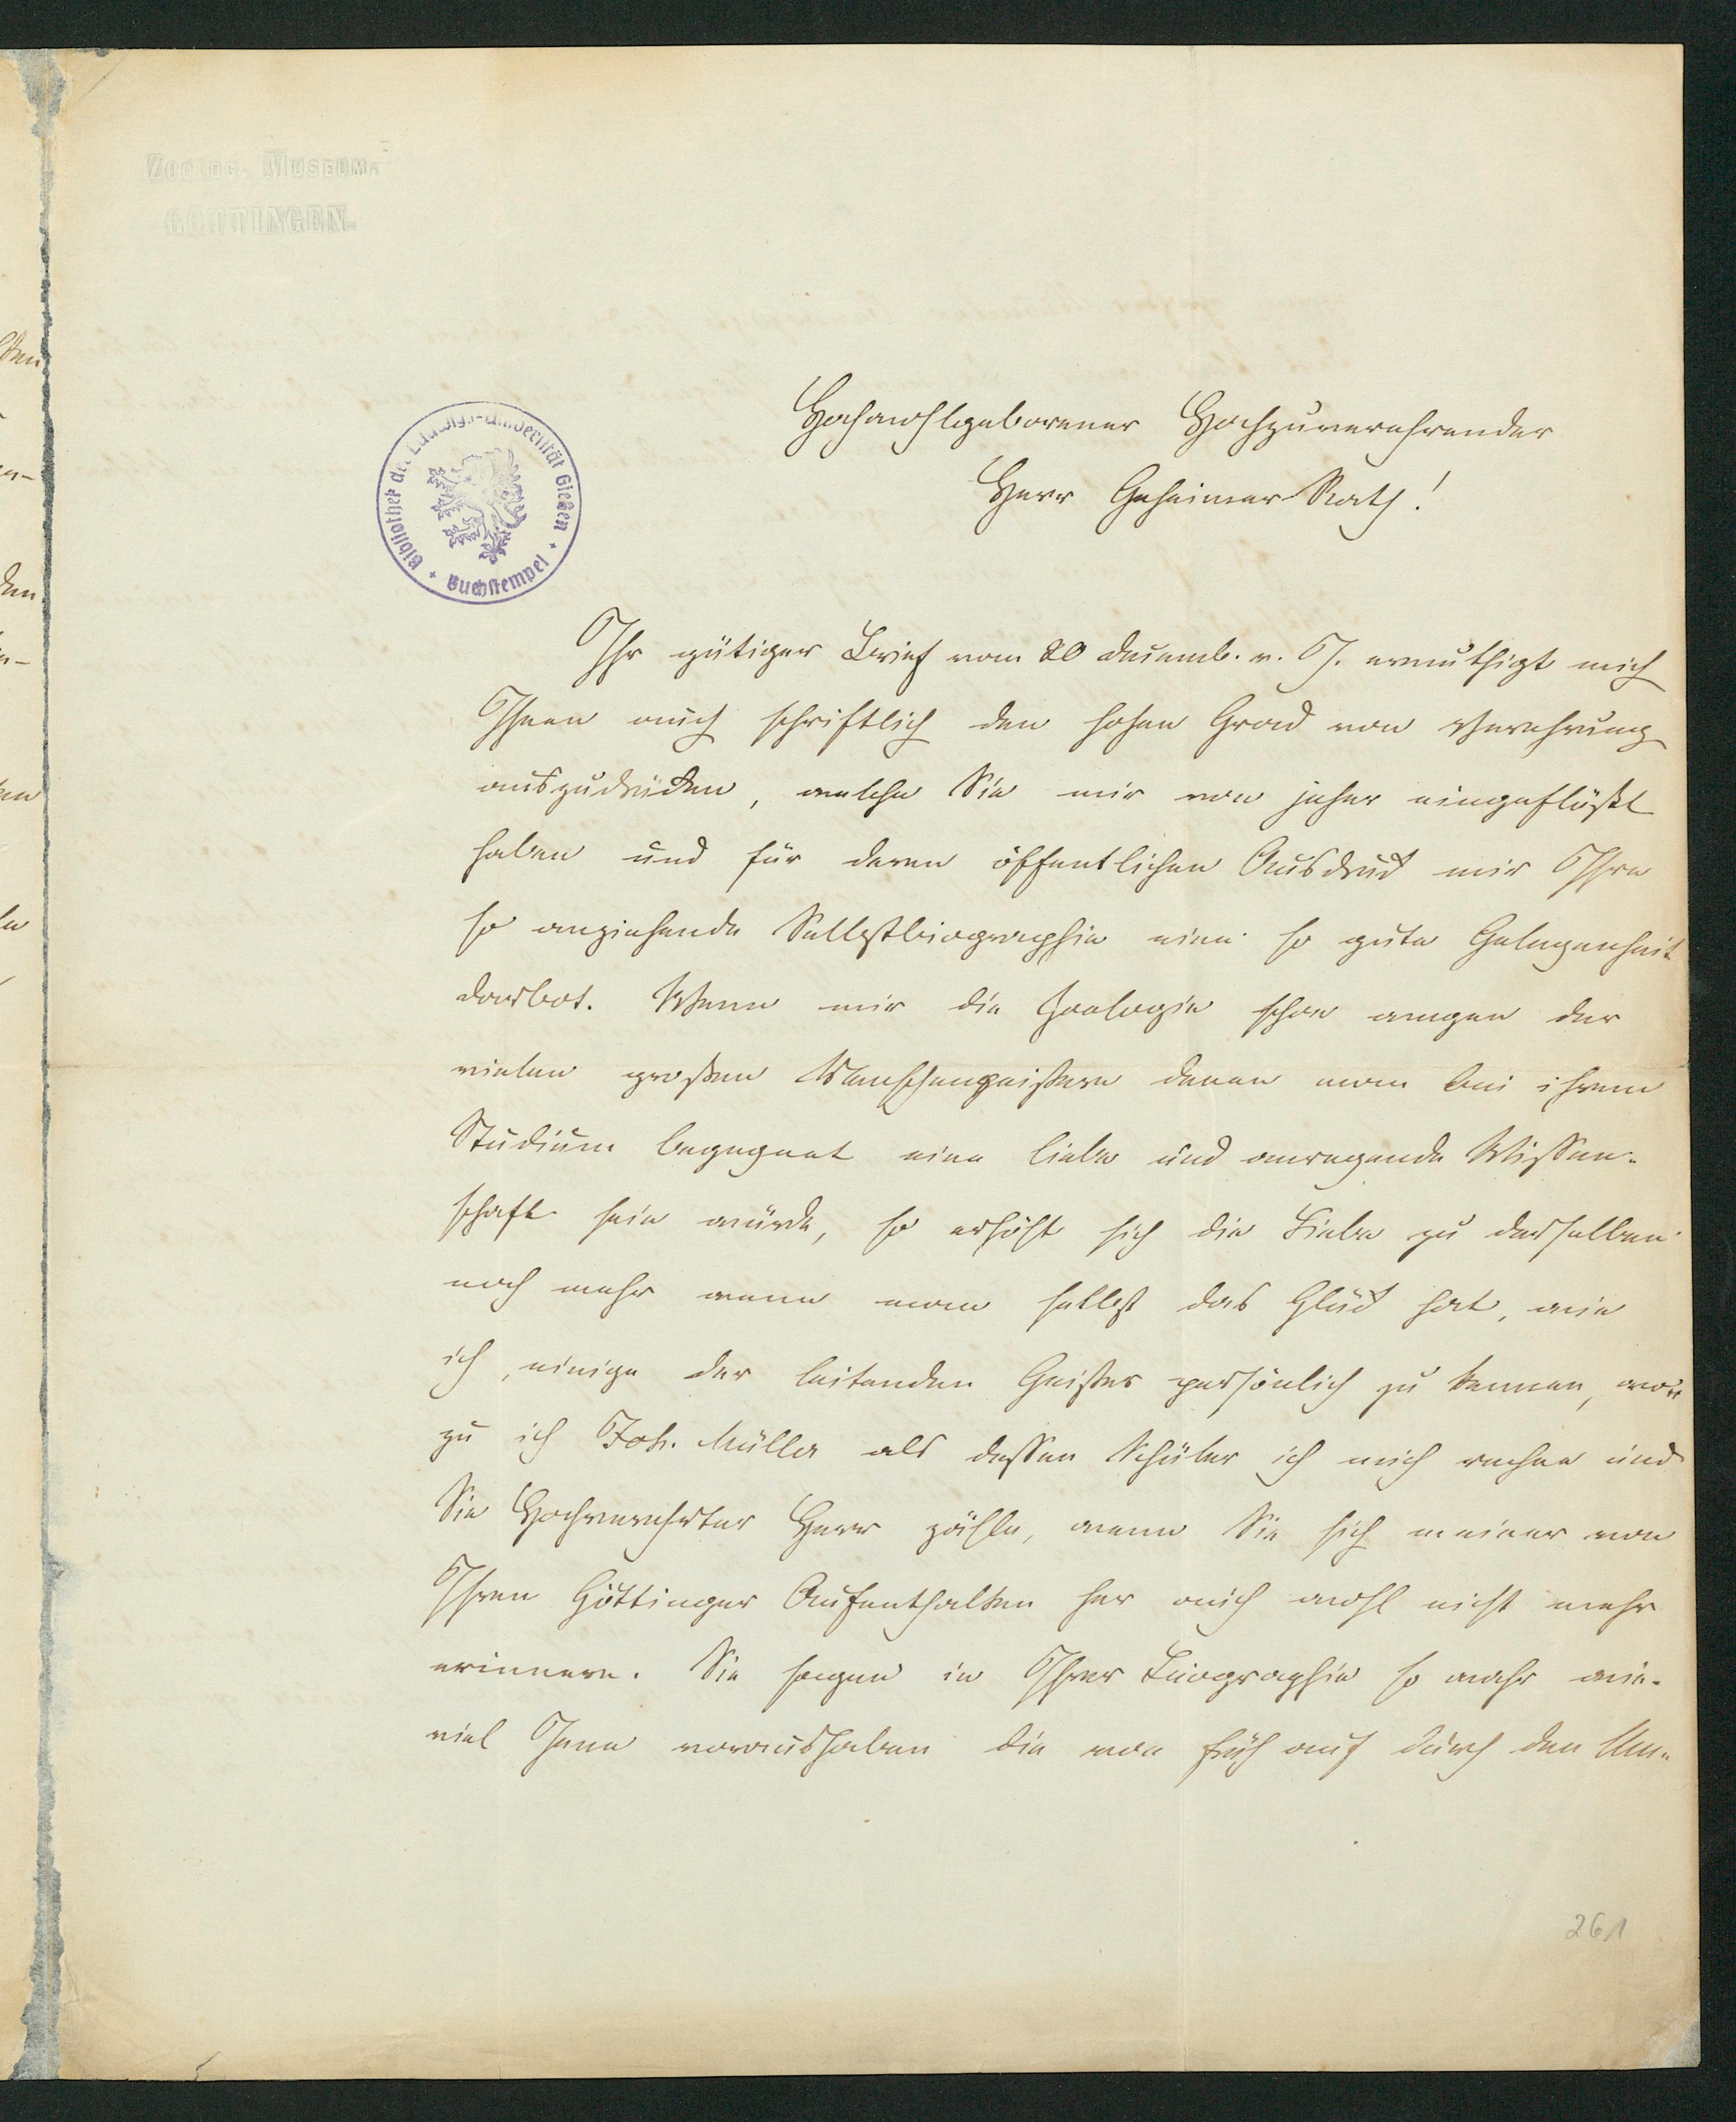 ZOOLOG. MUSEUM.
GÖTTINGEN.
Bibliothek der Ludwigs-Universität Gießen
Buchstempel
Hochwohlgeborener Hochzuverehrender
Herr Geheimer Rath!
Ihr gütiger Brief vom 20 Decemb. v. J. ermuthigt mich
Ihnen auch schriftlich den hohen Grad von Verehrung
auszudrücken, welche Sie mir von jeher eingeflößt
haben und für deren öffentlichen Ausdruck mir Ihre
so anziehende Selbstbiographie eine so gute Gelegenheit
darbot. Wenn mir die Zoologie schon wegen der
vielen großen Menschengeistern denen man bei ihrem
Studium begegnet eine liebe und anregende Wissen-
schaft sein würde, so erhöht sich die Liebe zu derselben
noch mehr wenn man selbst das Glück hat, wie
ich, einige der leitenden Geister persönlich zu kennen, wo-
zu ich Joh. Müller als dessen Schüler ich mich rechne und
Sie Hochverehrter Herr zähle, wenn Sie sich meiner von
Ihren Göttinger Aufenthalten her auch wohl nicht mehr
erinnern. Sie sagen in Ihrer Biographie so wahr wie-
viel Jene voraushaben die von früh auf durch den Um-
261